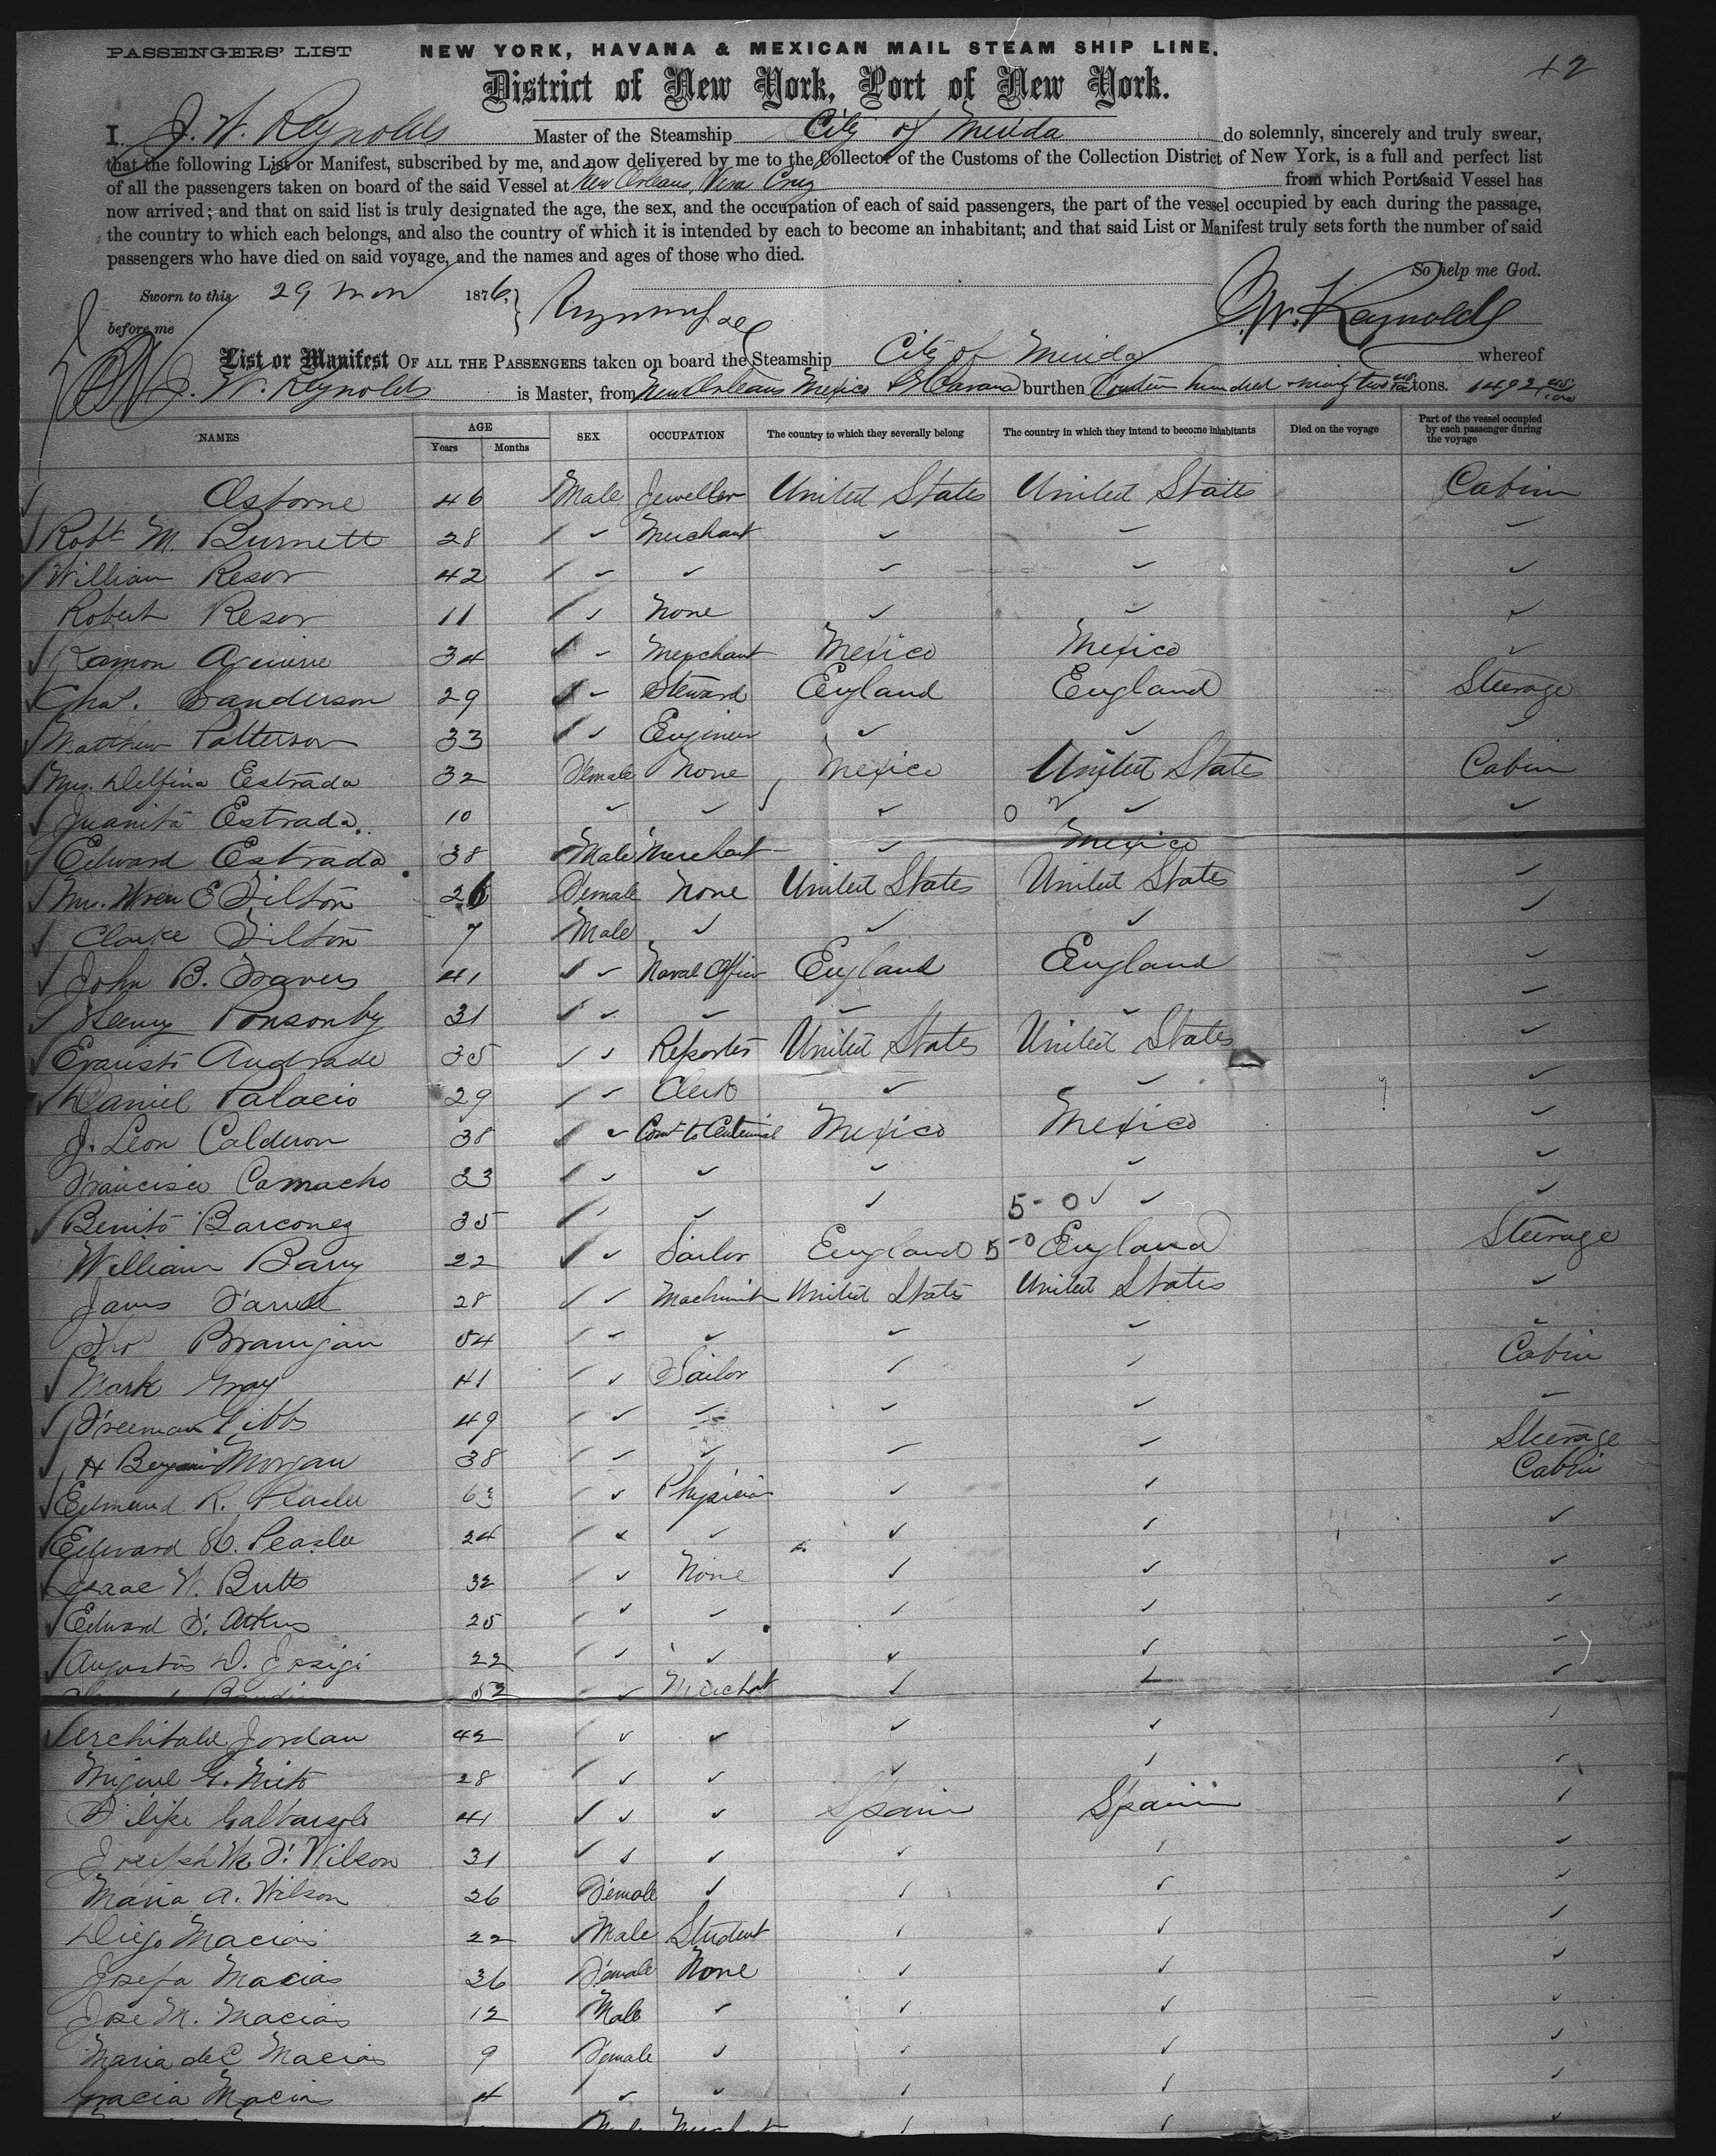 +2
PASSENGERS' LIST NEW YORK, HAVANA & MEXICAN MAIL STEAM SHIP LINE.
District of New York, Port of New York.
I, J. W. Reynolds Master of the Steamship City of Merida do solemnly, sincerely and truly swear,
that the following List or Manifest, subscribed by me, and now delivered by me to the Collector of the Customs of the Collection District of New York, is a full and perfect list
of all the passengers taken on board of the said Vessel at New Orleans, Vera Cruz from which Port said Vessel has
now arrived; and that on said list is truly designated the age, the sex, and the occupation of each of said passengers, the part of the vessel occupied by each during the passage,
the country to which each belongs, and also the country of which it is intended by each to become an inhabitant; and that said List or Manifest truly sets forth the number of said
passengers who have died on said voyage, and the names and ages of those who died.
So help me God.
Sworn to this 29 1876
before me J. W. Reynolds
List or Manifest OF ALL THE PASSENGERS taken on board the Steamship City of Merida whereof
J. W. Reynolds is Master, from New Orleans Mexico & Havana burthen hundred ninety two tons. 1492
NAMES AGE SEX OCCUPATION The country to which they severally belong The country in which they intend to become inhabitants Died on the voyage Part of the vessel occupied by each passenger during the voyage
Years Months
Osborne 46 Male Jeweller United States United States Cabin
Robt M. Burnett 28 Merchant
William Resor 42
Robert Resor 11 None
Ramon Aguirre 34 Merchant Mexico Mexico
Chas. Sanderson 29 Steward England England Steerage
Matthew Patterson 33 Engineer
Mrs. Delfina Estrada 32 Female None Mexico United States Cabin
Juanita Estrada 10
Edward Estrada 38 Male Merchant Mexico
Mrs. Wren E Tilton 26 Female None United States United States
Clarke Tilton 7 Male
John B. Travers 41 Naval Officer England England
Henry Ponsonby 31
Evaristo Andrade 35 Reporter United States United States
Daniel Palacio 29 Clerk
J. Leon Calderon 38 Comr to Centennial Mexico Mexico
Francisco Camacho 33
Benito Barconez 35 5-0
William Barry 22 Sailor England 5-0 England Steerage
James Farrell 28 Machinist United States United States
Thos Branigan 54
Mark Gray 41 Sailor Cabin
Freeman Gibbs 49
H Benjamin Morgan 38 Steerage
Edmund R. Peaslee 63 Physician Cabin
Edward H. Peaslee 24
Isaac W. Butts 32 None
Edward F. Atkins 25
Augustus D. 22
52 Merchant
Archibald Jordan 42
Miguel G. Nieto 28
Felipe 41 Spain Spain
Joseph W. F. Wilson 31
Maria A. Wilson 26 Female
Diego Macias 22 Male Student
Josefa Macias 36 Female None
Jose M. Macias 12 Male
Maria de C Macias 9 Female
Gracia Macias 4
Male Merchant